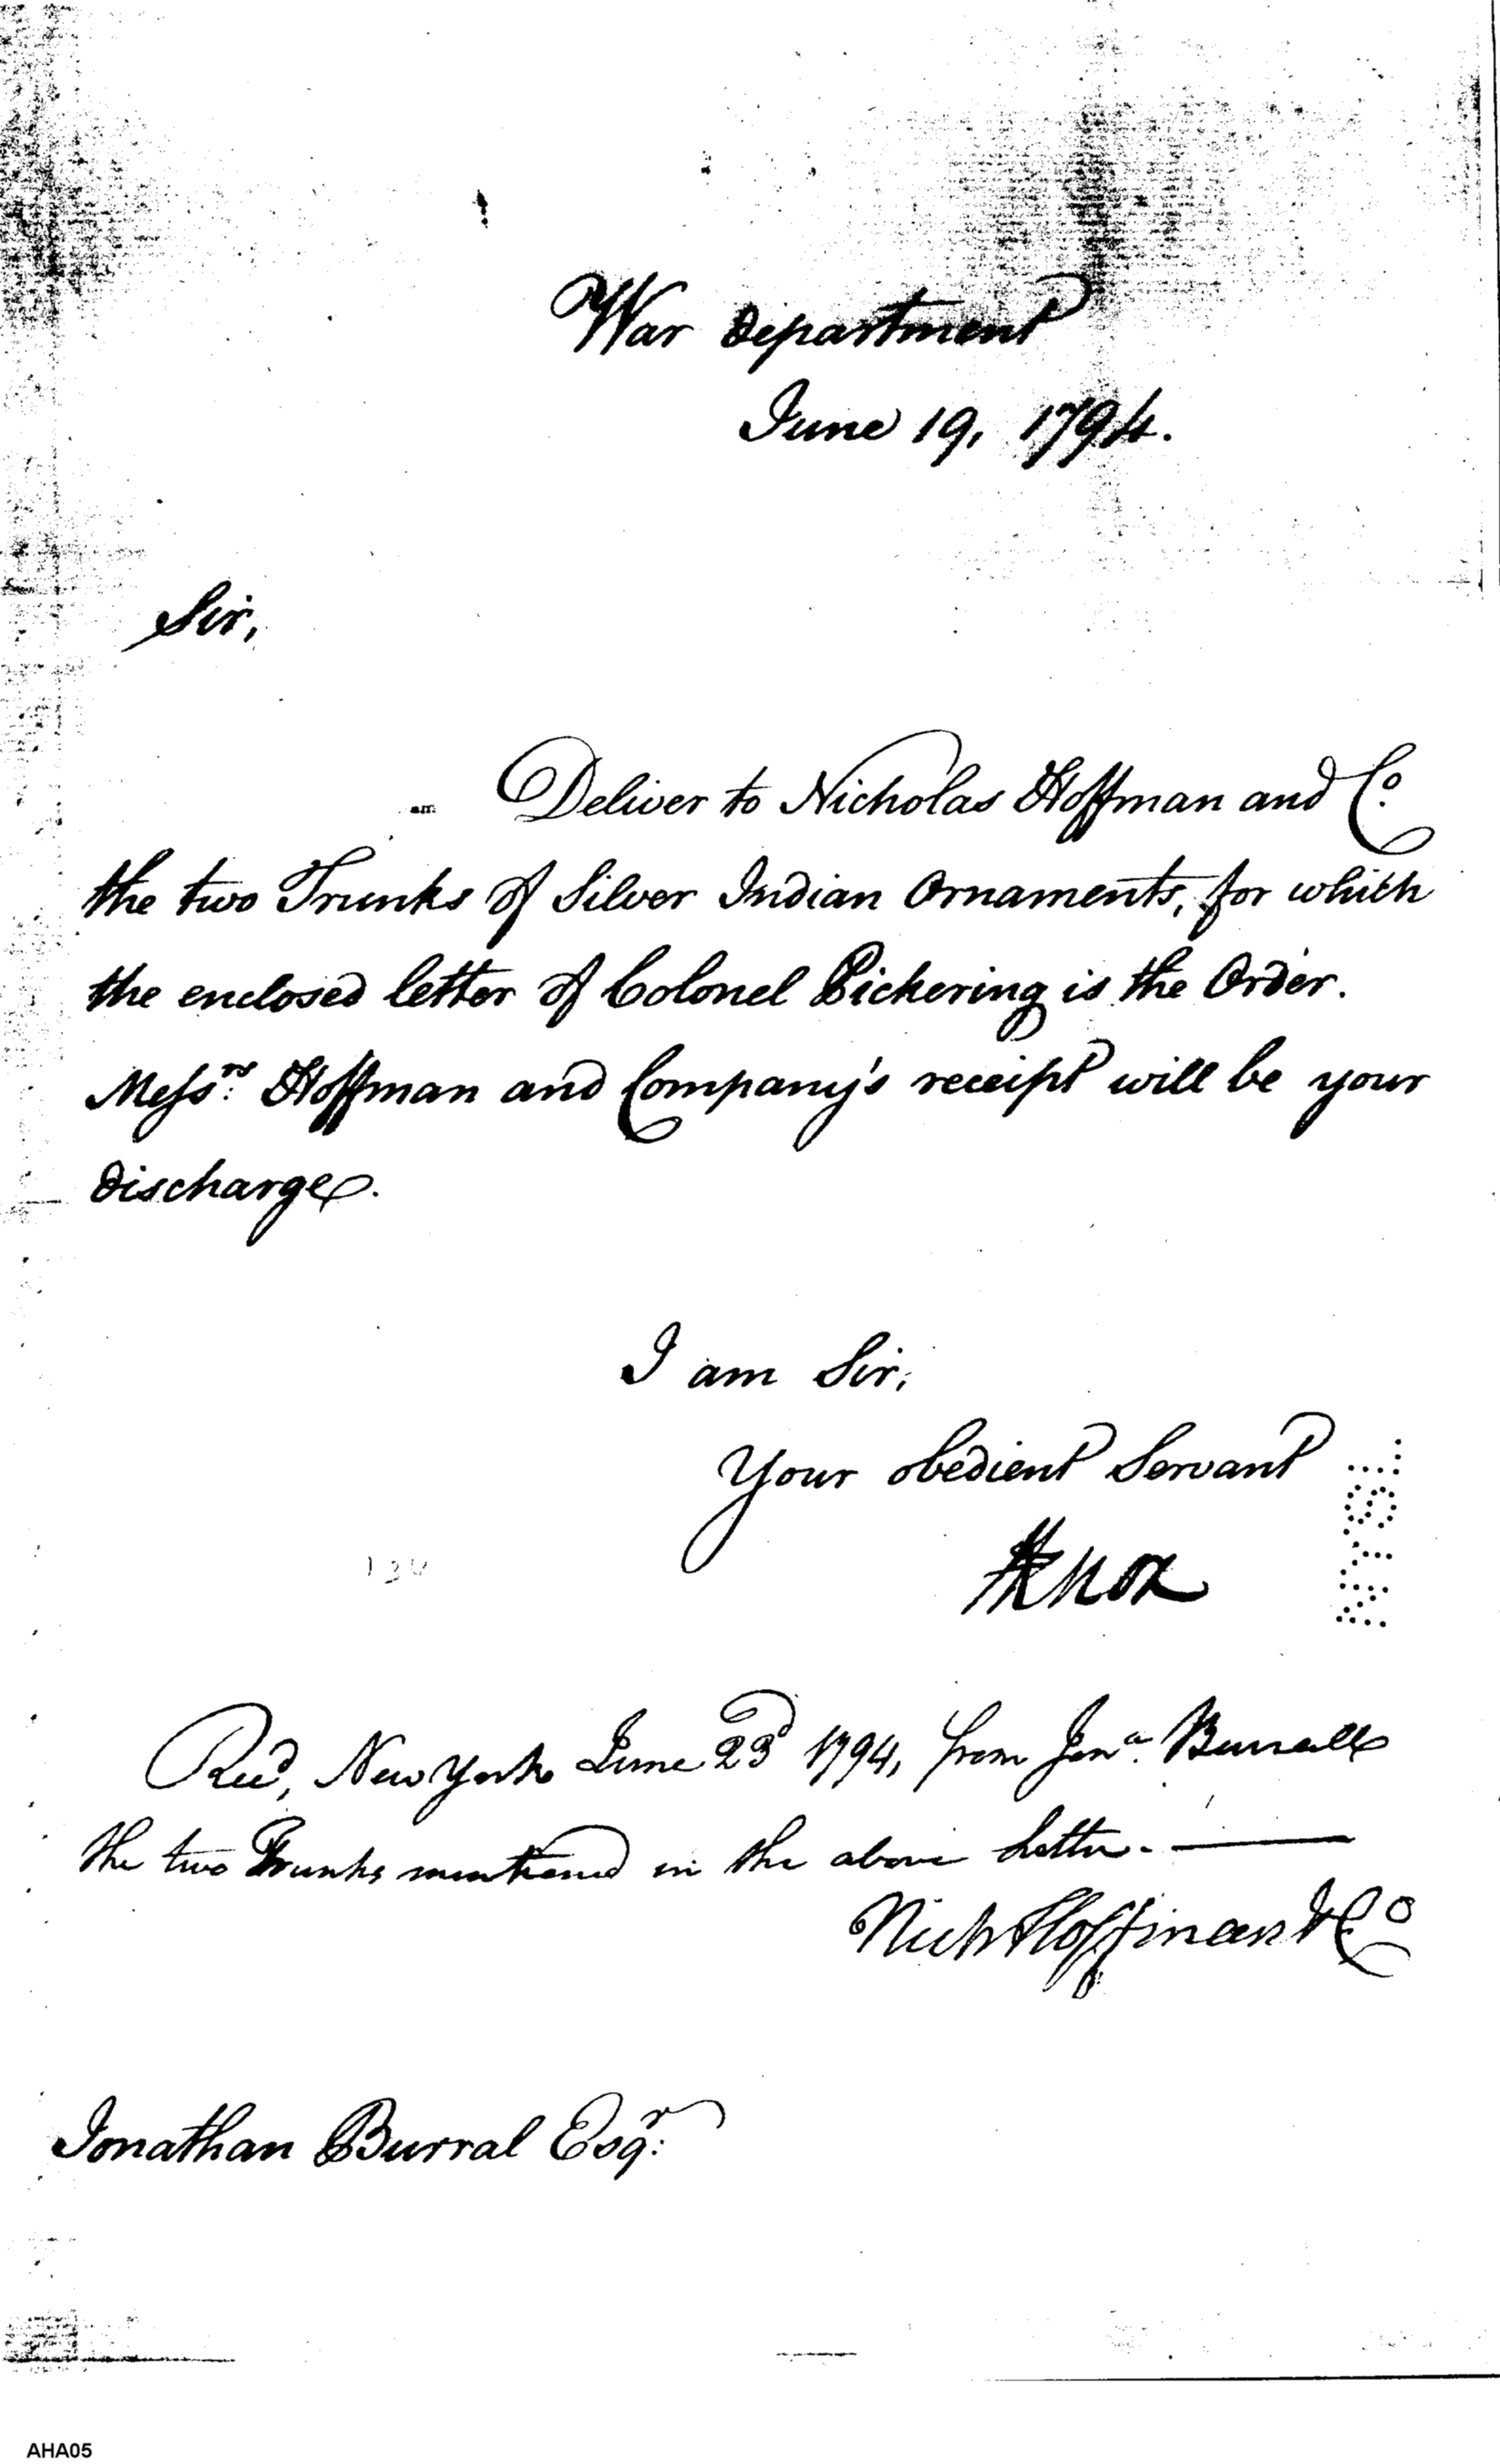 War Department
June 19, 1794.
Sir,
Deliver to Nicholas Hoffman and Co.
the two Trunks of Silver Indian Ornaments, for which
the enclosed letter of Colonel Pickering is the Order.
Messrs. Hoffman and Company's receipt will be your
discharge.
I am Sir,
Your obedient Servant
HKnox
Recd, New York June 23d 1794, from Jona. Burrall
the two Trunks mentioned in the above Letter.
Nich Hoffman & Co
Jonathan Burral Esqr.
AHA05